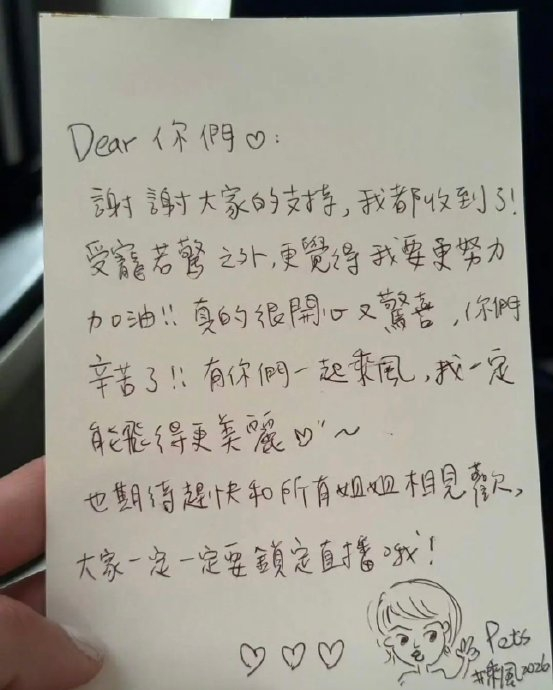 Dear 你們♡:
謝謝大家的支持,我都收到了!
受寵若驚之外,更覺得我要更努力
加油!! 真的很開心又驚喜,你們
辛苦了!! 有你們一起乘風,我一定
能飛得更美麗♡~
也期待趕快和所有姐姐相見歡,
大家一定一定要鎖定直播哦!
♡♡♡
Pets
#乘風2026